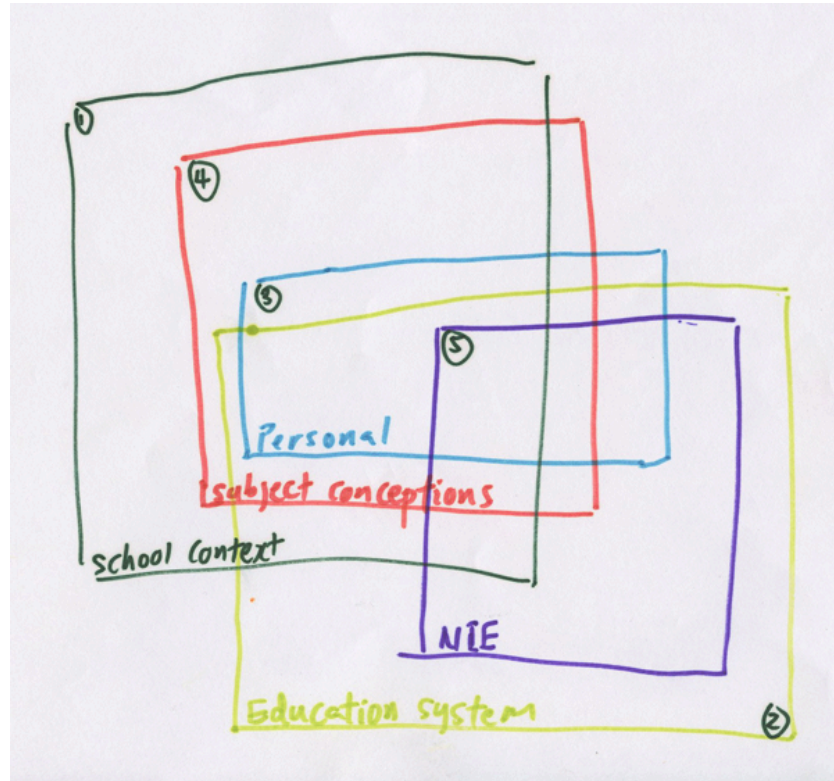 ①
④
③
⑤
Personal
subject conceptions
school context
NIE
Education system
②